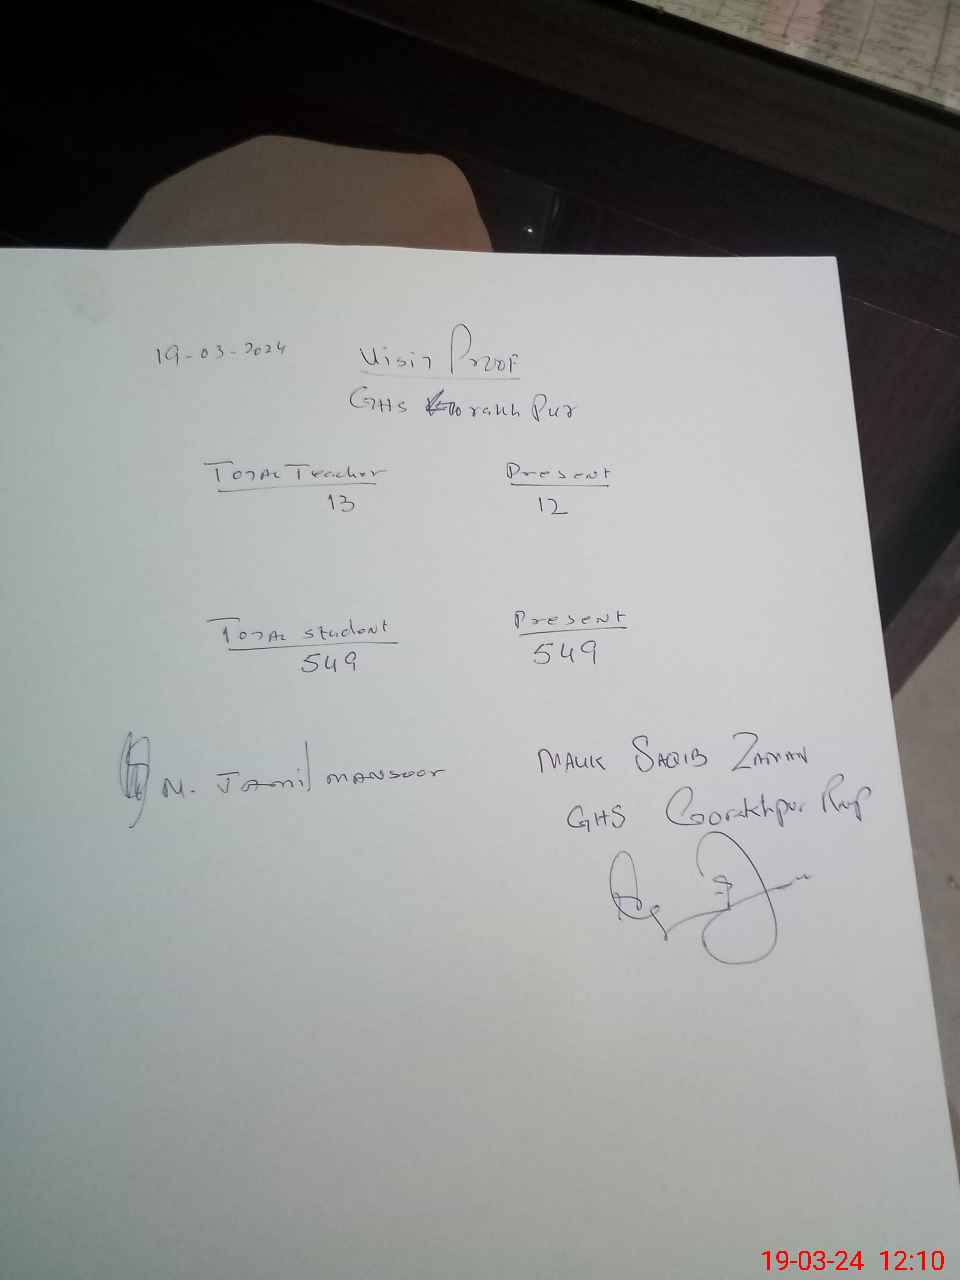 19-03-2024 Visit Proof
GHS Gorakh Pur
Total Teacher Present
13 12
Total Student Present
549 549
M. Jamil Mansoor
Malik Saqib Zaman
GHS Gorakhpur Rwp
19-03-24 12:10